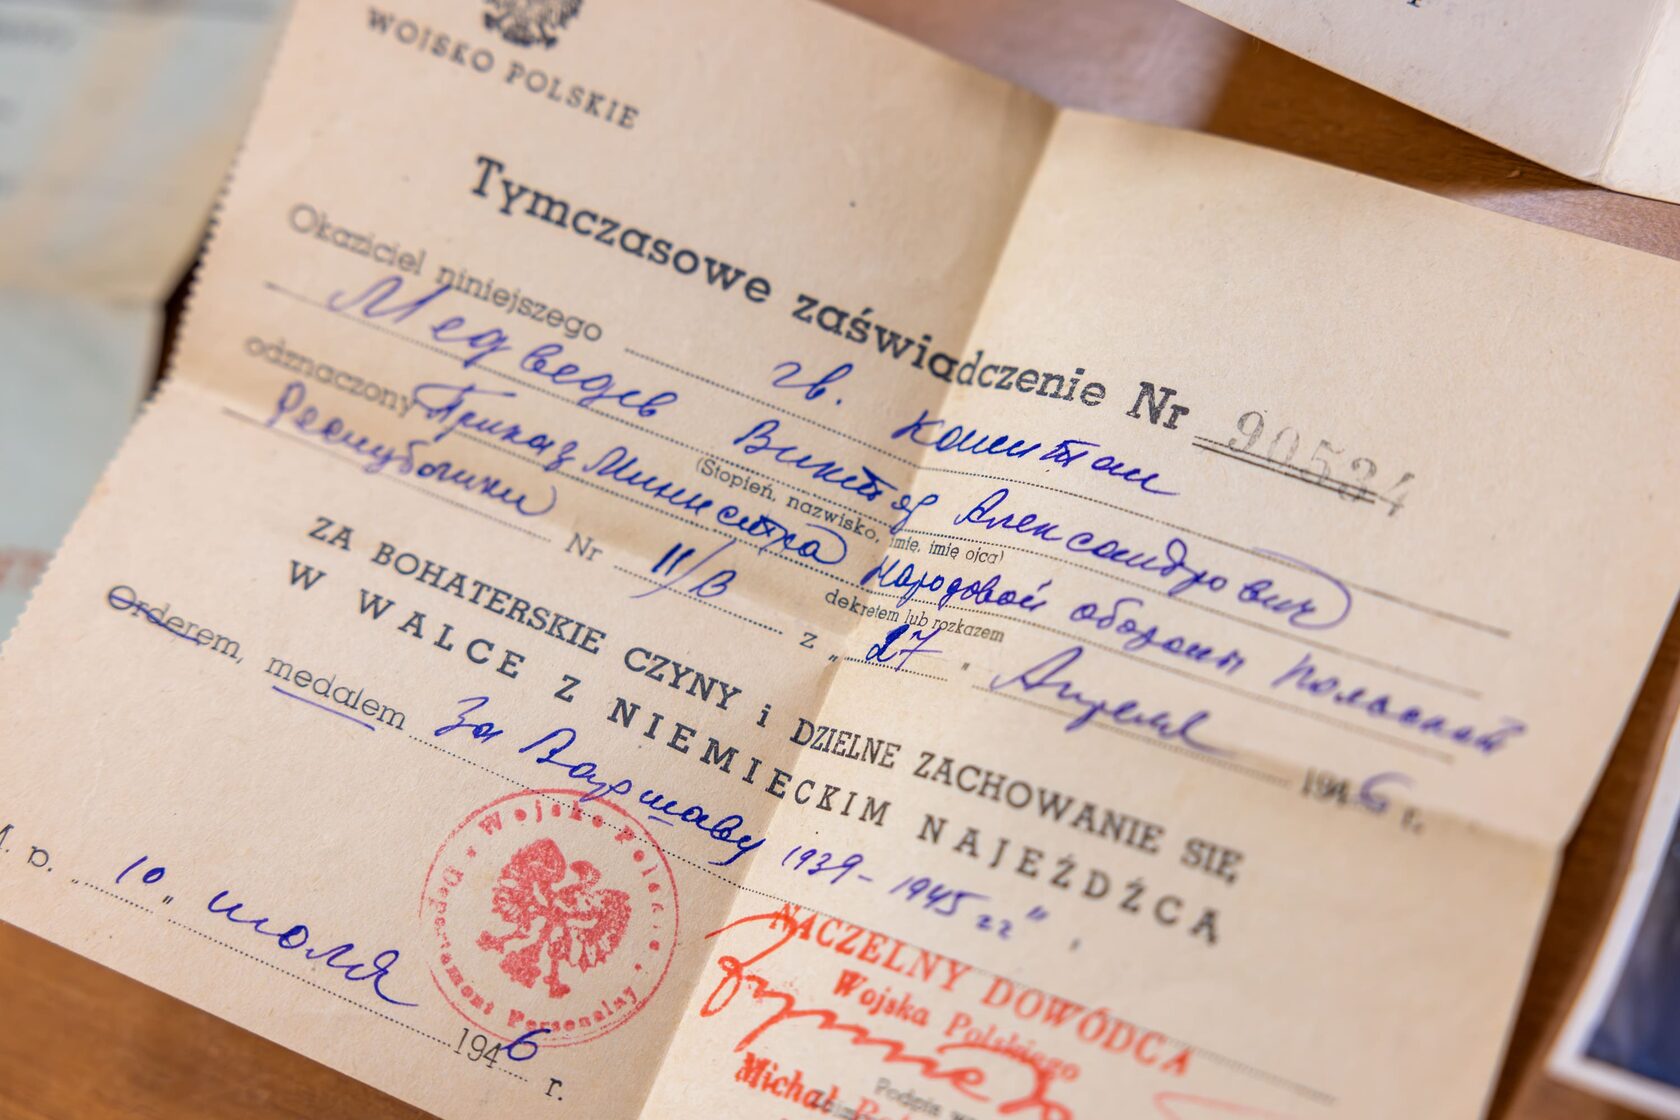 WOJSKO POLSKIE
Tymczasowe zaświadczenie Nr 90534
Okaziciel niniejszego гв. капитан
Медведев Виктор Александрович
(Stopień, nazwisko, imię, imię ojca)
odznaczony Приказ Министра Народовой обороны Польской
dekretem lub rozkazem
Республики Nr 11/В z „27" Апреля 1946 r.
ZA BOHATERSKIE CZYNY i DZIELNE ZACHOWANIE SIĘ
W WALCE Z NIEMIECKIM NAJEŹDŹCĄ
Orderem, medalem За Варшаву 1939-1945 гг".
Wojsko Polskie
Departament Personalny
M. p. „10" июля 1946 r.
NACZELNY DOWÓDCA
Wojska Polskiego
Podpis
Michał